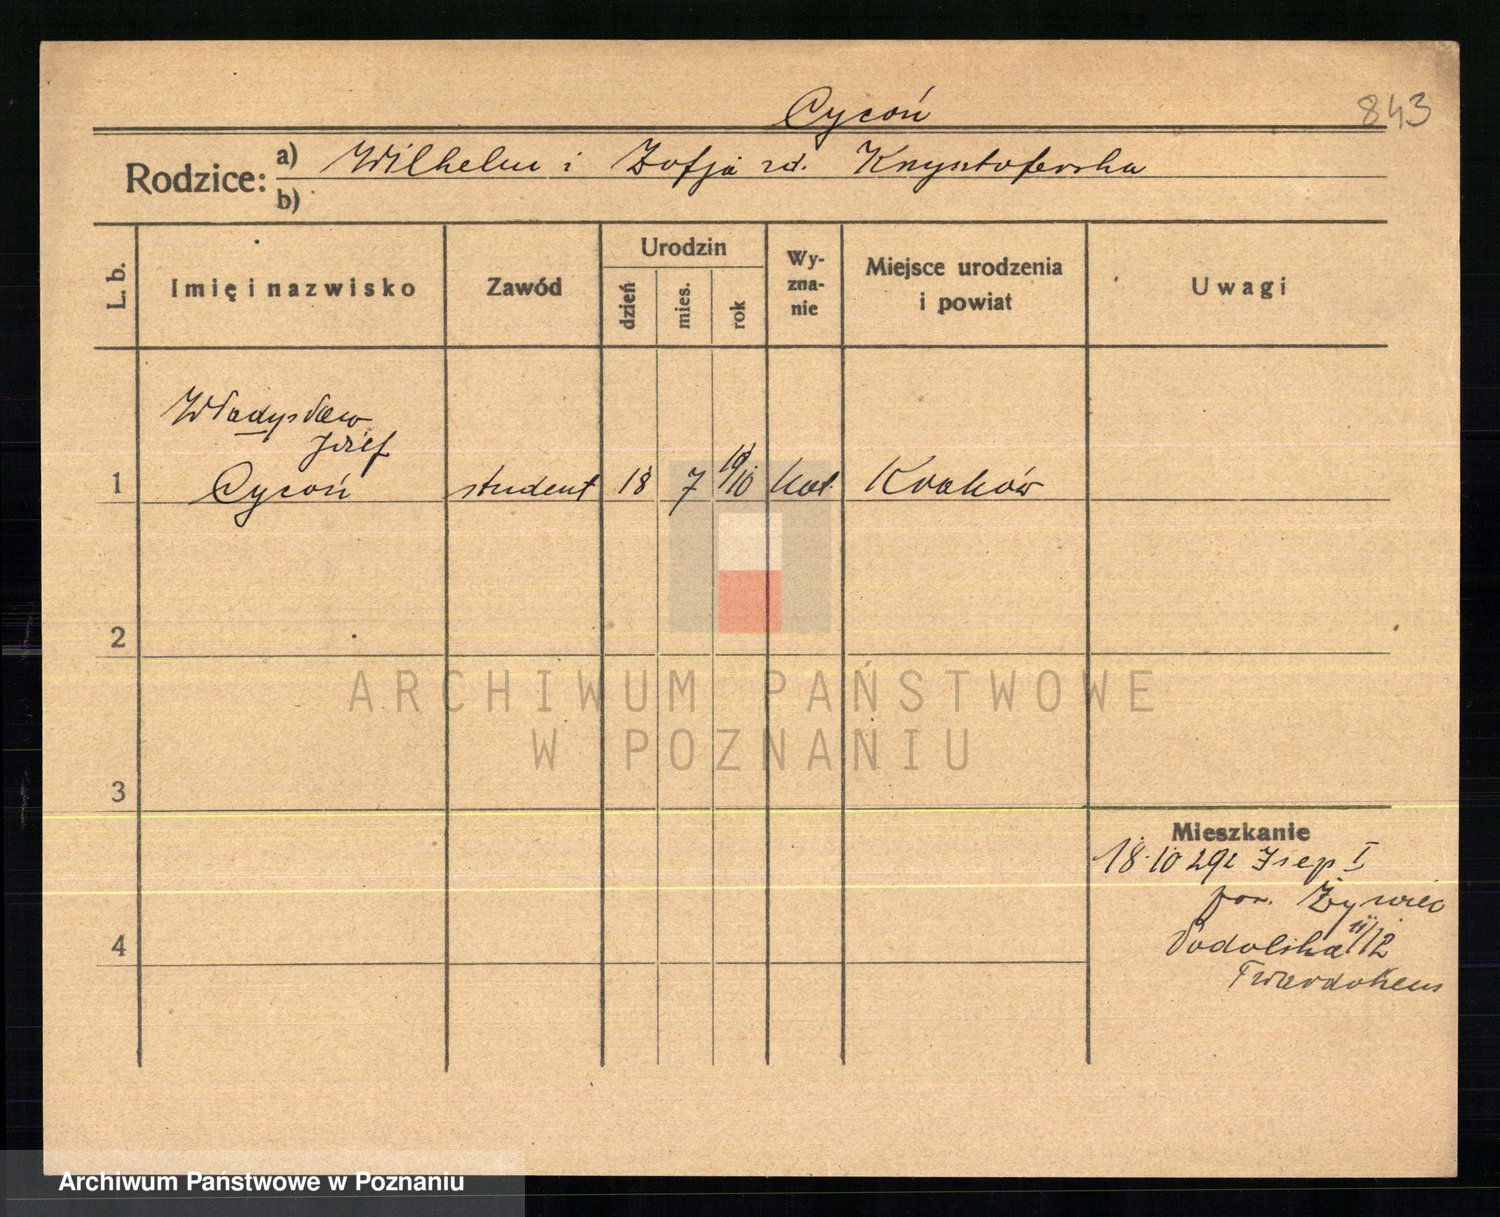 Cycoń
843
Rodzice: a) Wilhelm i Zofja rd. Krysztoforska
b)
L. b.
Imię i nazwisko
Zawód
Urodzin
dzień
mies.
rok
Wy-
zna-
nie
Miejsce urodzenia
i powiat
Uwagi
Władysław
Józef
1 Cycoń student 18 7 19/10 kat Kraków
2
3
Mieszkanie
18.10 29 z Isep I
pow. Żywiec
4
Podolska 11/12
ARCHIWUM PAŃSTWOWE
W POZNANIU
Archiwum Państwowe w Poznaniu